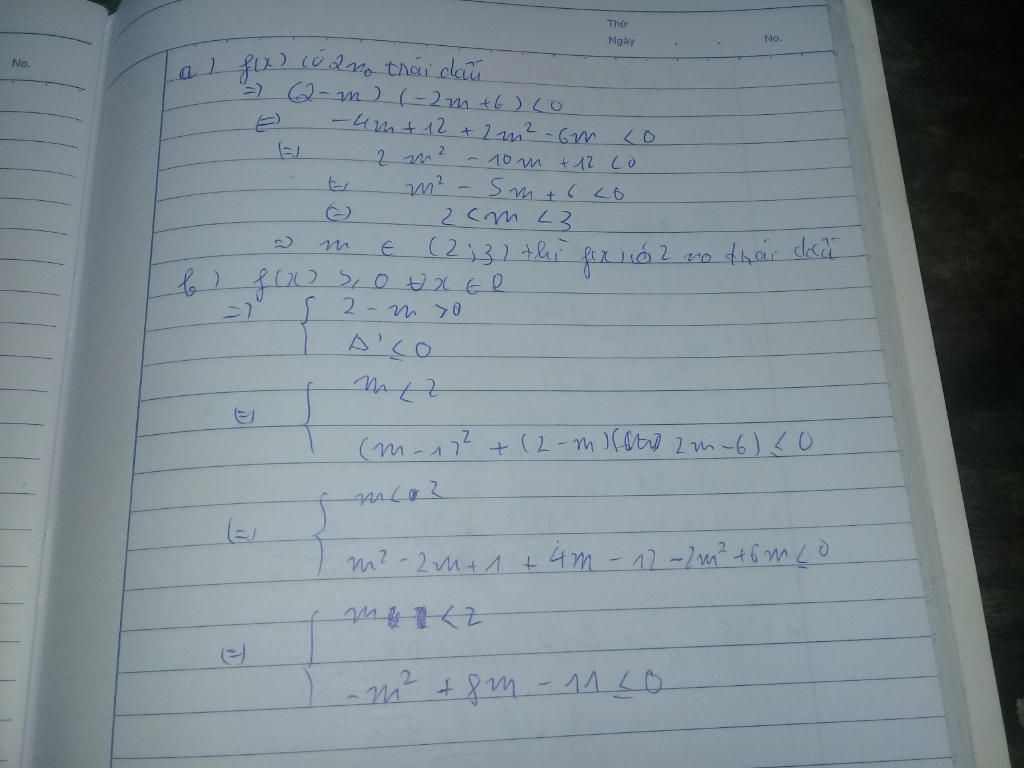 No.
Thứ
Ngày . . No.
a) f(x) có 2 no trái dấu
=> (2-m) (-2m+6) <0
<=> -4m+12+2m²-6m <0
<=> 2m² -10m +12 <0
<=> m² - 5m + 6 <0
<=> 2 <m <3
=> m ∈ (2;3) thì f(x) có 2 no trái dấu
b) f(x) ≥ 0 ∀x ∈ R
=> { 2 - m >0
Δ' ≤ 0
<=> { m <2
(m-1)² + (2-m)( 2m-6) ≤ 0
<=> { m< 2
m² - 2m+1 + 4m - 12 -2m² +6m ≤ 0
<=> { m <2
-m² + 8m - 11 ≤ 0